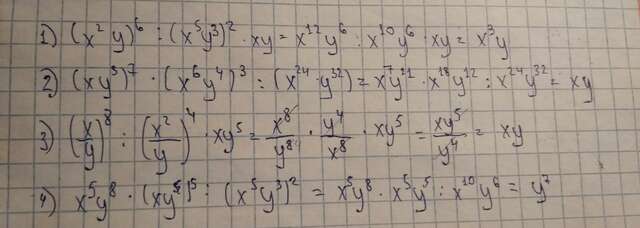 1) (x²y)⁶ : (x⁵y³)² · xy = x¹²y⁶ : x¹⁰y⁶ · xy = x³y
2) (xy³)⁷ · (x⁶y⁴)³ : (x²⁴ · y³²) = x⁷y²¹ · x¹⁸y¹² : x²⁴y³² = xy
3) (x/y)⁸ : (x²/y)⁴ · xy⁵ = x⁸/y⁸ · y⁴/x⁸ · xy⁵ = xy⁵/y⁴ = xy
4) x⁵y⁸ · (xy)⁵ : (x⁵y³)² = x⁵y⁸ · x⁵y⁵ : x¹⁰y⁶ = y⁷